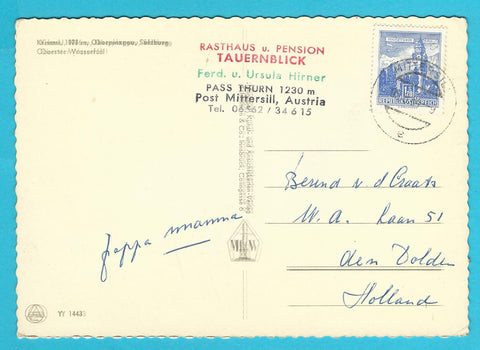 Krimml, 1076 m, Oberpinzgau, Salzburg
Oberster Wasserfall
RASTHAUS u. PENSION
TAUERNBLICK
Ferd. u. Ursula Hirner
PASS THURN 1230 m
Post Mittersill, Austria
Tel. 06562 / 34 6 15
REPUBLIK ÖSTERREICH
MITTERSILL
e
Berend v. d. Craats
W. A. Laan 51
den Dolder
Holland
pappa mamma
YY 1443